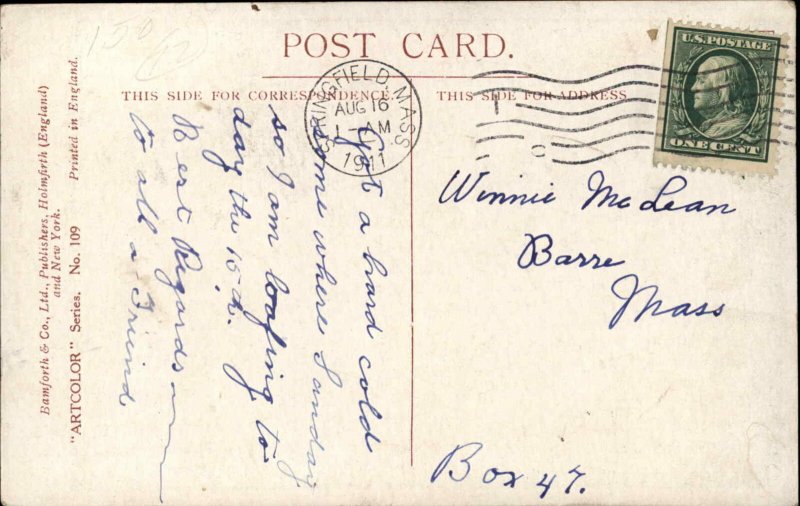 POST CARD.
THIS SIDE FOR CORRESPONDENCE.
THIS SIDE FOR ADDRESS
SPRINGFIELD, MASS
AUG 16
1 - AM
1911
U.S. POSTAGE
ONE CENT
Got a hard cold
some where Sunday
so I am loafing to
day the 15th.
Best Regards
to all a Friend
Winnie McLean
Barre
Mass
Box 47.
Bamforth & Co., Ltd., Publishers, Holmfirth (England)
and New York.
"ARTCOLOR" Series. No. 109 Printed in England.